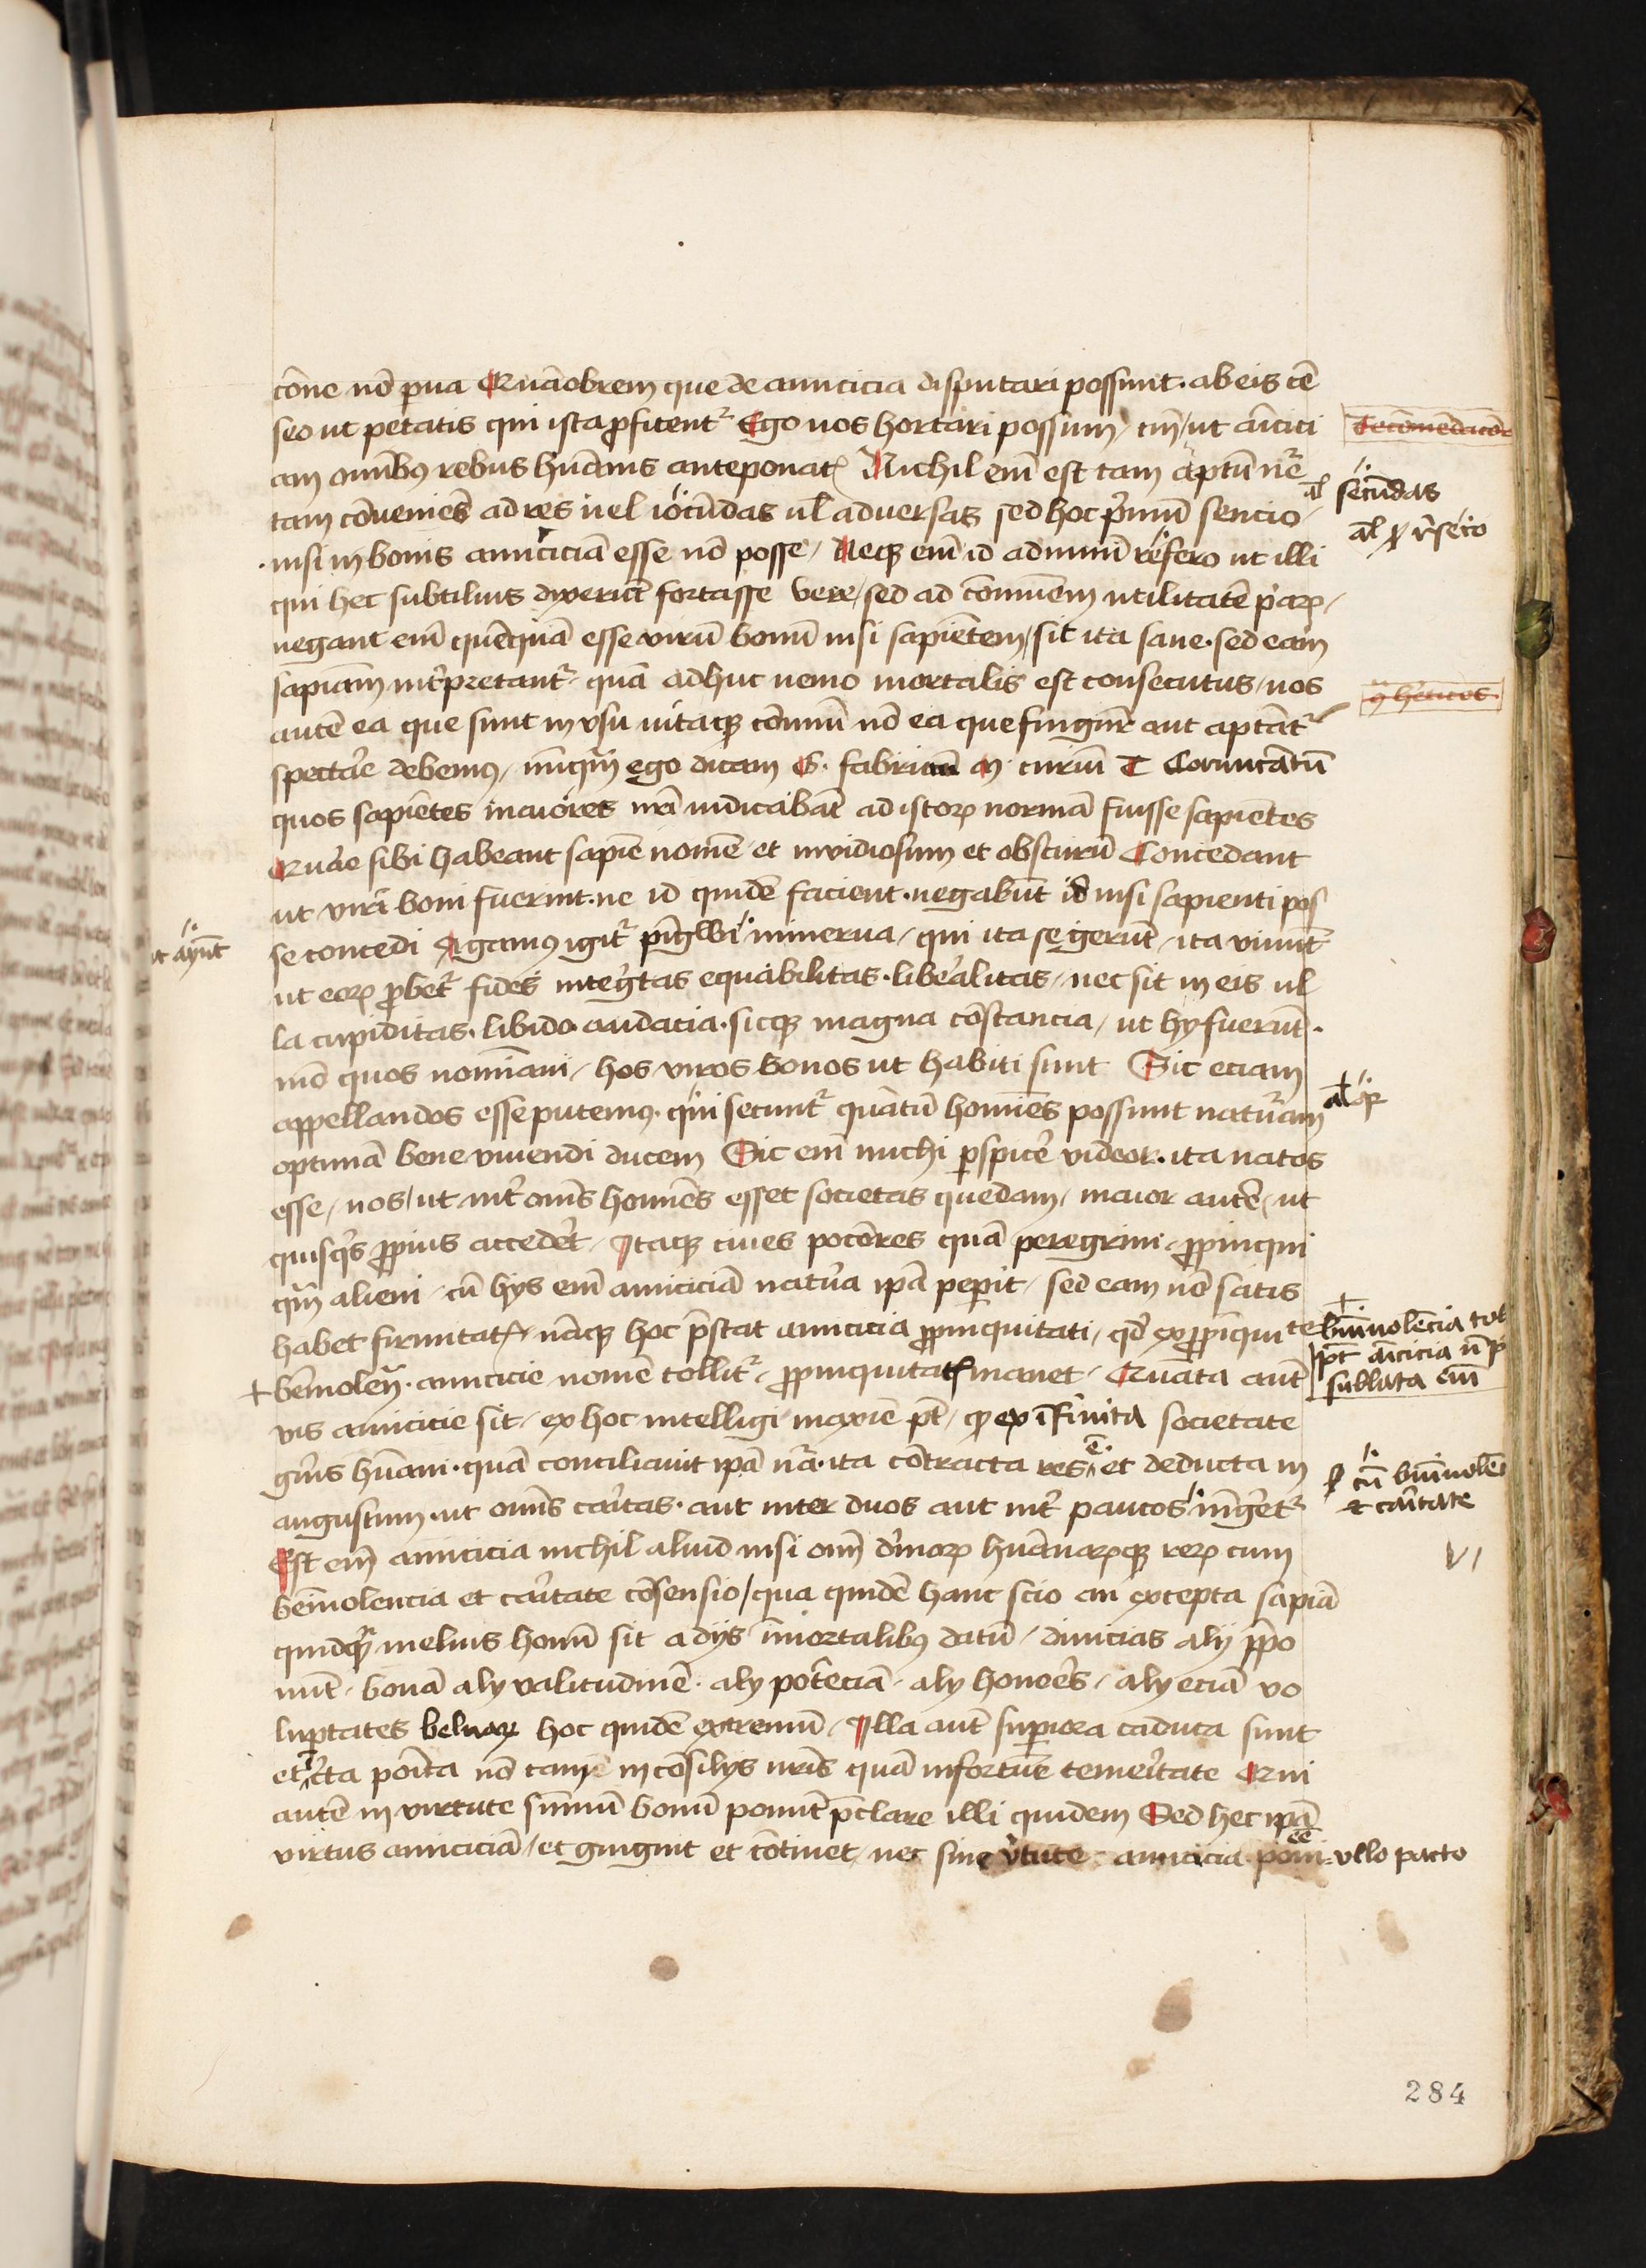 cōne nō pua Quāobrem que de amicicia disputari possunt · ab eis cē
seo ut petatis qui ista ꝓfitentʳ Ego uos hortari possum / tm̄ / ut am̄cici
am omībꝰ rebus hūanis anteponatꝭ Nichil em̄ est tam aptū nr̄e
tam cōueniēs ad res uel iocūdas ul̄ aduersas sed hoc pͥmū sencio /
nisi in bonis amiciciā esse nō posse / Neqꝫ em̄ id ad uiuū refero ut illi
qui hec subtilius dixerūt fortasse vere / sed ad cōmunem utilitatē parꝝ /
negant em̄ quēquā esse virū bonū nisi sapientem / sit ita sane · sed eam
sapiam̄ int̄pretantʳ quā adhuc nemo mortalis est consecutus / nos
autē ea que sunt in vsu uitaqꝫ cōmuni nō ea que fingunt̄ aut aptātʳ
spectar̄e debemꝰ / nūqm̄ ego dicam G · fabriciū M · curiū T Coruncātū
quos sapiētes maiores nr̄i iudicabāt ad istorꝝ normā fuisse sapientes
Quar̄e sibi habeant sapiē nomē et invidiosum et obscurū Concedant
ut viri boni fuerint · ne id quidē facient · negabūt id nisi sapienti pos
se concedi Agamꝰ igitʳ pīgwi minerua / qui ita se gerūt / ita viuūt
ut eorꝝ ꝓbetʳ fides integͥtas equabilitas · liber̄alitas / nec sit in eis ul
la cupiditas · libido audacia · sicqꝫ magna cōstancia / ut hy fuerūt ·
mō quos nomīaui / hos viros bonos ut habiti sunt Sic eciam
appellandos esse putemꝰ · qui secuntʳ quātū homīes possunt natur̄am
optimā bene viuendi ducem Sic em̄ michi ꝑspicer̄e videor · ita natos
esse / nos / ut int̄ om̄s homīes esset societas quedam / maior autē / ut
quisqͥs ꝓpius accedēt / Itaqꝫ ciues pociōres quā peregrini / ꝓpinqui
qm̄ alieni / cū hys em̄ amiciciā natur̄a ipā peperit / sed eam nō satis
habet firmitatꝭ / nāqꝫ hoc pr̄stat amicicia ꝓpinquitati / qd̄ ex ꝓpīqui te
amicicie nomē tollitʳ / ꝓpinquitatꝭ manet / Quāta aut̄
vis amicicie sit / ex hoc intelligi maxīe pt̄ / qꝫ ex īfinita societate
gn̄is hūani · quā conciliauit ipā nr̄a · ita cōtracta res ē et deducta in
angustum · ut om̄is caritas · aut inter duos aut int̄ paucos iūgeretʳ
Est em̄ amicicia nichil aliud nisi om̄ diuinorꝝ hūanarꝝqꝫ rerꝝ cum
beniuolencia et caritate cōsensio / qua quidē hanc scio an excepta sapiā
quidqm̄ melius homī sit a dijs īmortalibꝰ datū / diuicias alij ꝓpo
nūt / bonā aly valitudinē · aly potēciā / aly honoēs / aly eciā vo
luptates beluarꝝ hoc quidē extremū / Illa aut̄ superiora caduca sunt
et īcta posita nō tam in cōsilijs nr̄is quā in fortune temeritate Qui
autē in virtute sūmū bonū ponūt pͣclare illi quidem Sed hec ipā
virtus amiciciā / et gingnit et cōtinet / nec sine v̄tute amicicia ēē
secūdas
al̄
ut aȳnt
al̄
+ beniuolēcia tol
pt̄ am̄cicia n̄ p
sublata em̄
cū beniuolē
et caritate
VI
vllo pacto
284